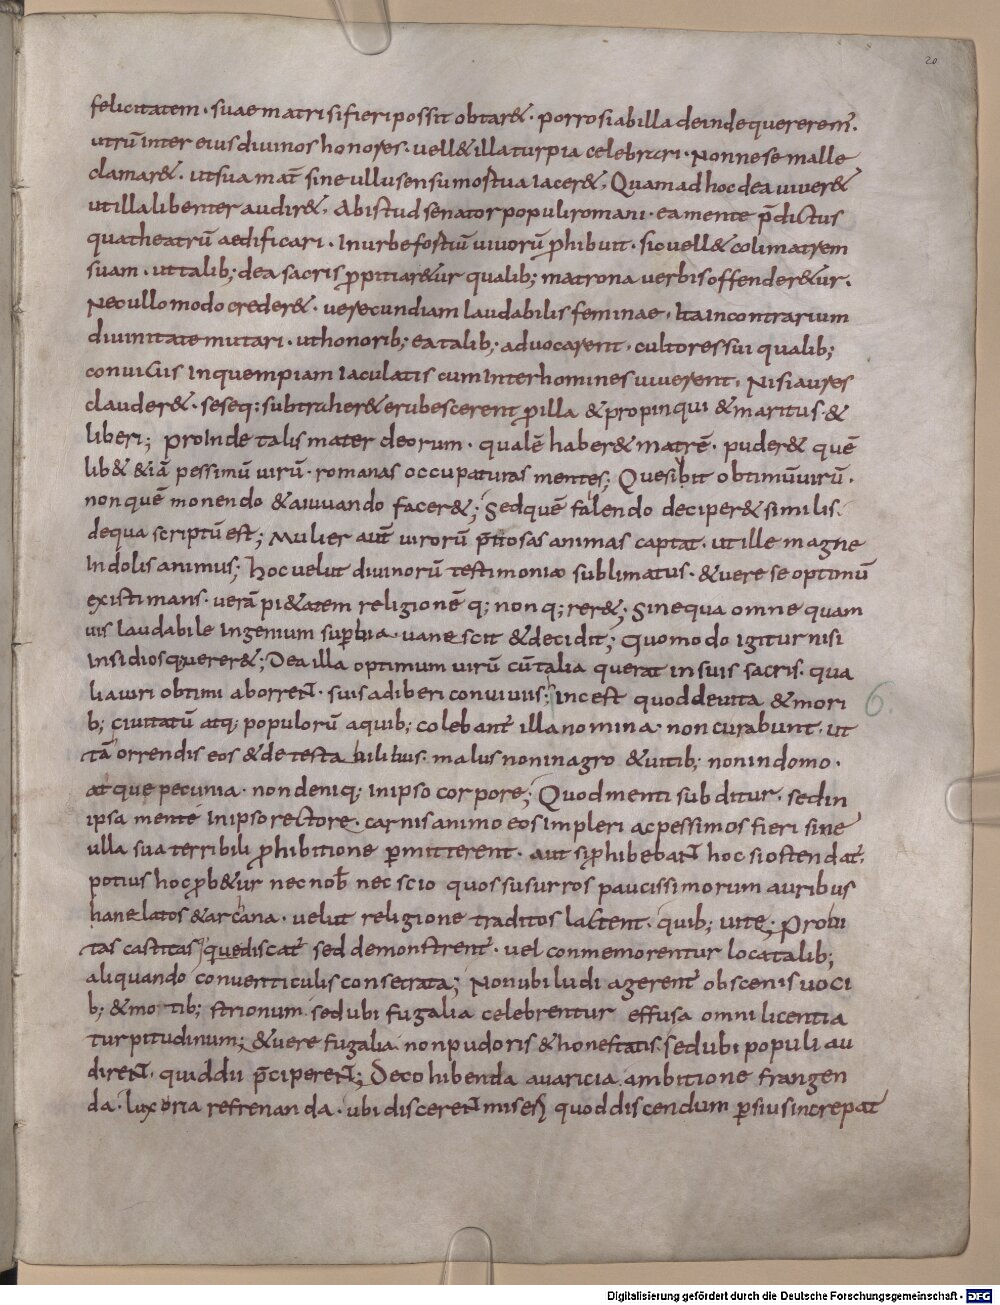 20
felicitatem · suae matri si fieri possit obtar& · porro si ab illa deinde quererem̄ ·
utrū inter eius divinos honores · vell& illa turpia celebrari · Nonne se malle
clamar& · ut sua mat̄ sine ullu sensu mostua iacer& · Quam ad hoc dea viver&
ut illa libenter audir& · Ab istud senator populi romani · ea mente p̄dictus
qua theatrū aedificari · In urbe fostiū vivorū ꝓhibuit · sic vell& coli matrem
suam · ut talib; dea sacris ꝓpitiar&ur qualib; matrona verbis offender&ur ·
Nec ullo modo creder& · verecundiam laudabilis feminae · Ita in contrarium
divinitate mutari · ut honorib; ea talib; advocarent · cultores sui qualib;
conviciis In quempiam Iaculatis cum Inter homines viverent · Nisi aures
clauder& · seseq: subtraher& erubescerent ꝓ illa & propinqui & maritus · &
liberi; proInde talis mater deorum · qualē haber& matrē · puder& quē
lib& &iā pessimū virū · romanas occupaturas mentes; Quesibit obtimū virū ·
non quē monendo & aiuvando facer&; Sed quē falendo deciper& similis ·
de qua scriptū est; Mulier aut̄ virorū p̄tiosas animas captat · ut ille magne
Indolis animus; hoc velut divinorū testimonio sublimatus · & vere se optimū
existimans · verā pi&atem religionē q; non q; rer&; Sine qua omne quam
vis laudabile Ingenium suꝑbia · vanescit & decidit; Quomodo igitur nisi
Insidios querer&; Dea illa optimum virū cū talia querat in suis sacris · qua
lia viri obtimi aborrent · suis adiberi conviviis; inc est quod de vita & mori
b; civitatū atq; populorū a quib; colebant̄ illa nomina · non curabunt · ut
tā orrendis eos & detestabilibus · malus non in agro & vitib; non in domo ·
atque pecunia · non deniq; in ipso corpore; Quod menti subditur · sed in
ipsa mente in ipso rectore · carnis animo eos impleri ac pessimos fieri sine
ulla sua terribili ꝓhibitione ꝑmitterent · aut si ꝓhibebant hoc si ostendat̄ ·
potius hoc ꝓb&ur nec nob̄ nescio quos susurros paucissimorum auribus
hanelatos & arcana · velut religione traditos lactent · quib; vite; Probi
tas castitasque discat̄ sed demonstrent̄ · vel conmemorentur loca talib;
aliquando conventiculis consetrata; Non ubi ludi agerent̄ obscenis voci
b; & motib; strionum · sed ubi fugalia celebrentur effusa omni licentia
turpitudinum; & vere fugalia · non pudoris & honestatis · sed ubi populi au
dirent · quid dii p̄ciperent; De cohibenda avaricia · ambitione frangen
da · luxoria refrenanda · ubi discerent miseri quod discendum ꝑsius increpat
6.
Digitalisierung gefördert durch die Deutsche Forschungsgemeinschaft - DFG